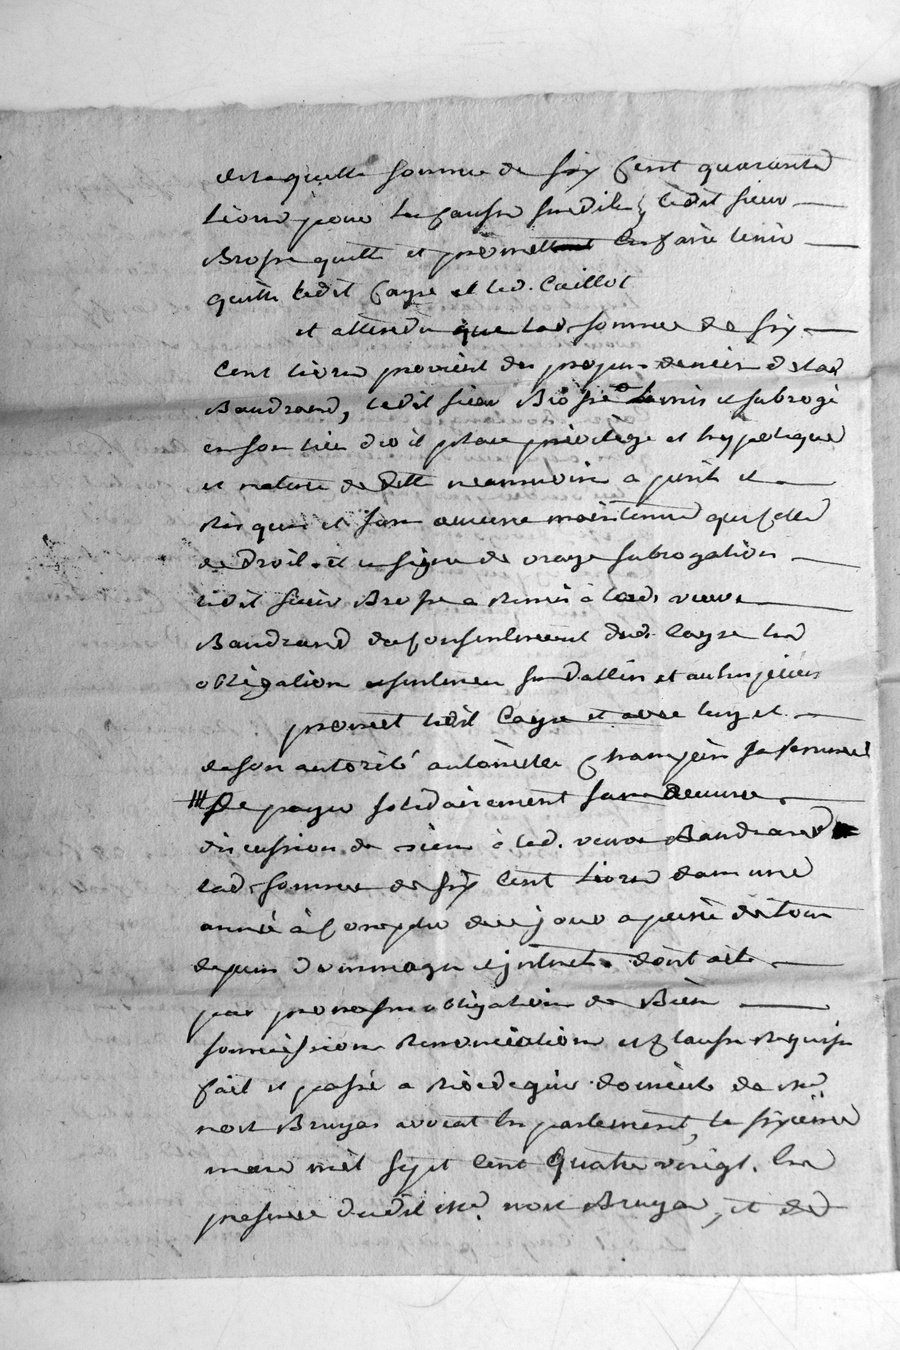 de laquelle somme de six cent quarante
livres pour les causes susdites ledit sieur
Brosse quitte et promet les faire tenir
quitte ledit Cayre et led. Caillot
et attendu que lad. somme de six
cent livres provient des propres deniers de lad
Baudrand, ledit sieur Brosse la mis et subrogé
en son lieu droit place privilege et hypoteque
et nature de dette neanmoins a perils et
risques et sans aucune maintenue que celle
de droit. et en signe de vraye subrogation
ledit sieur Brosse a remis à lad. veuve
Baudrand du consentement dud. Cayre lad
obligation sentence susdattés et autres pieces
promet ledit Cayre et avec luy et
de son autorité antoinette Champein sa femme
de payer solidairement sans aucune
discussion de biens à lad. veuve Baudrand
lad. somme de six cent livres dans une
année à compter de ce jour a peine de tous
depens dommages et interets. dont acte
par promesse obligation de Biens
soumissions renonciations et clauses requises
fait et passé a domicile de me
noir Bruyas avocat en parlement, le sixieme
mars mil sept cent quatre vingt. en
presence dudit me. noir Bruyas, et de